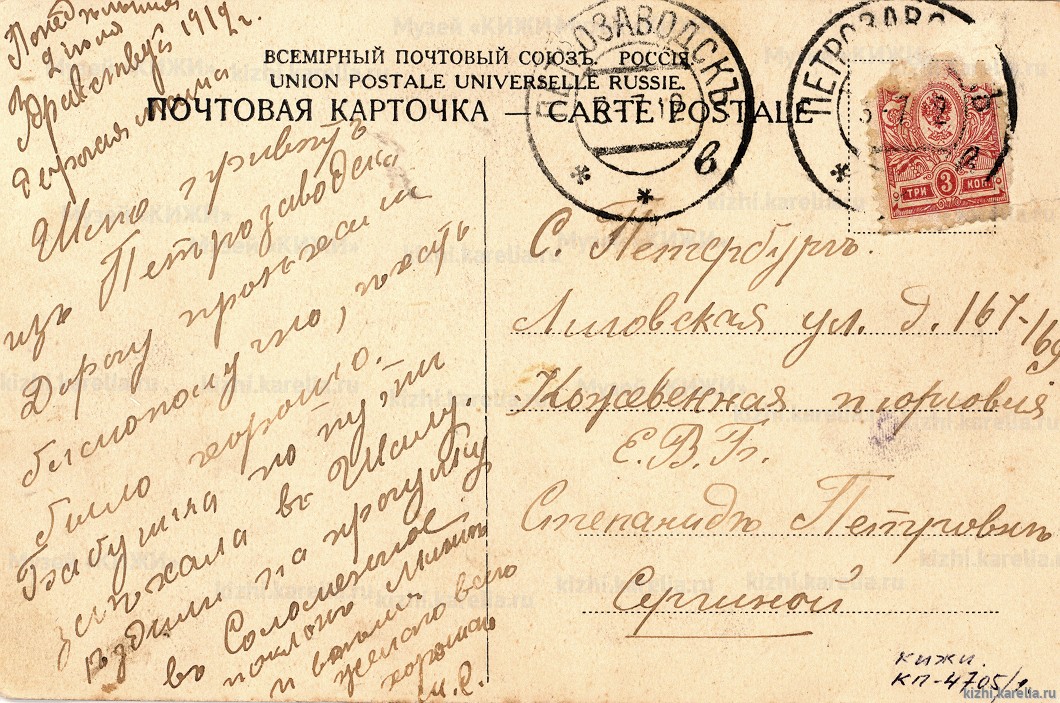 Понедельник
2 июля 1912 г.
Здравствуй
дорогая мама
Шлю привѣтъ
изъ Петрозаводска
Дорогу проѣхали
благополучно, ѣхать
было хорошо.
Бабушка по пути
заѣхала въ Шалу.
ѣздили на прогулку
въ Соломенное.
поклонъ
и
желаю всего
хорошаго
ВСЕМІРНЫЙ ПОЧТОВЫЙ СОЮЗЪ. РОССІЯ.
UNION POSTALE UNIVERSELLE RUSSIE.
ПОЧТОВАЯ КАРТОЧКА — CARTE POSTALE
ПЕТРОЗАВОДСКЪ
в
ПЕТРОЗАВО
ТРИ 3 КОП
С. Петербургъ.
Лиговская ул. д. 167-169
Кожевенная торговля
Е. В. Г.
Степанидѣ Петровнѣ
Сергиной
КИЖИ.
КП-4705/1
Музей «КИЖИ»
kizhi.karelia.ru